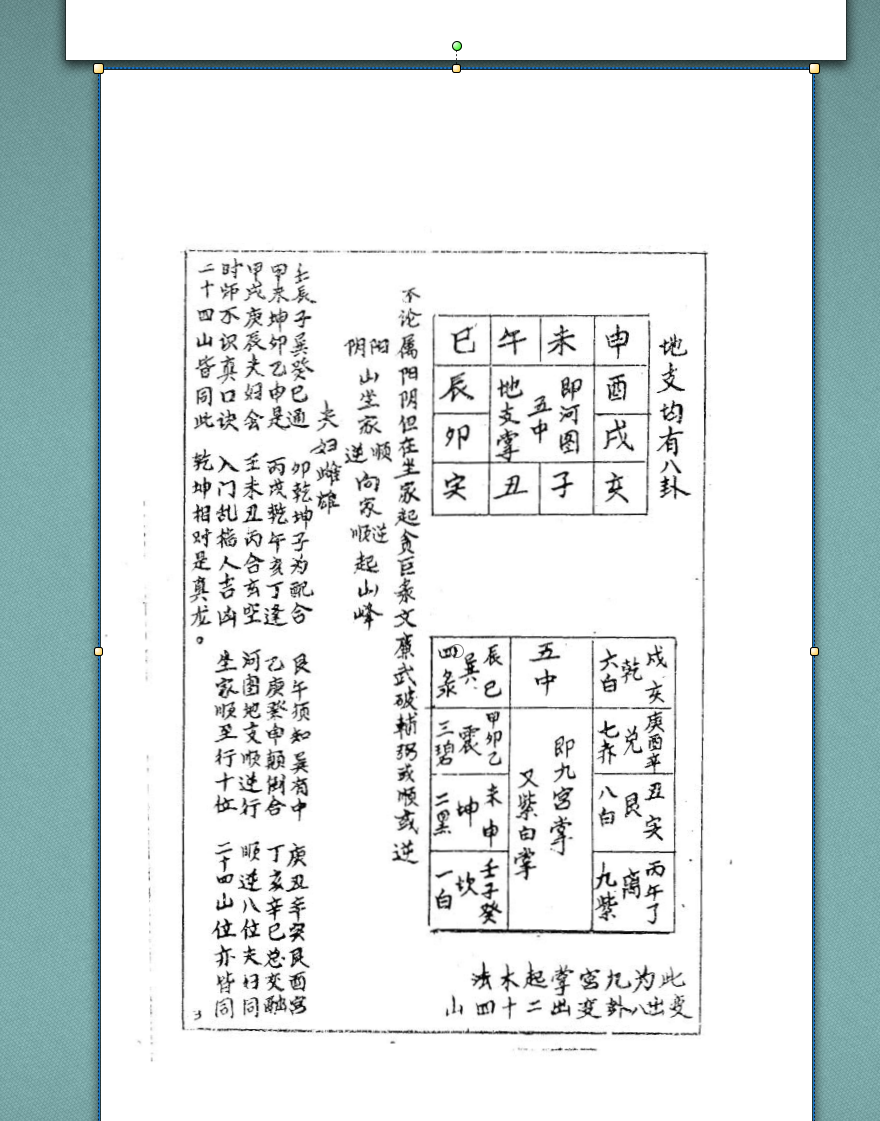 地支均有八卦
巳 午 未 申
辰 酉
即河图
五中
地支掌
卯 戌
寅 丑 子 亥
戌亥
乾
六白
庚酉辛
兑
七赤
丑寅
艮
八白
丙午丁
离
九紫
五中
即九宫掌
又紫白掌
辰巳
巽
四录
甲卯乙
震
三碧
未申
坤
二黑
壬子癸
坎
一白
此为九宫掌起木法
变出八卦变出二十四山
不论属阳阴但在坐家起贪巨录文廉武破辅弼或顺或逆
阳阴山坐家顺逆向家逆顺起山峰
夫妇雌雄
壬辰子巽癸巳通 卯乾坤子为配合 艮午须知巽有中 庚丑辛寅艮酉宫
甲未坤卯乙申是 丙戌乾午亥丁逢 乙庚癸申颠倒合 丁亥辛巳总交融
甲戌庚辰夫妇会 壬未丑丙合玄空 河图地支顺逆行 顺逆八位夫妇同
时师不识真口诀 入门乱指人吉凶 坐家顺至行十位 二十四山位亦皆同
二十四山皆同此 乾坤相对是真龙。
3